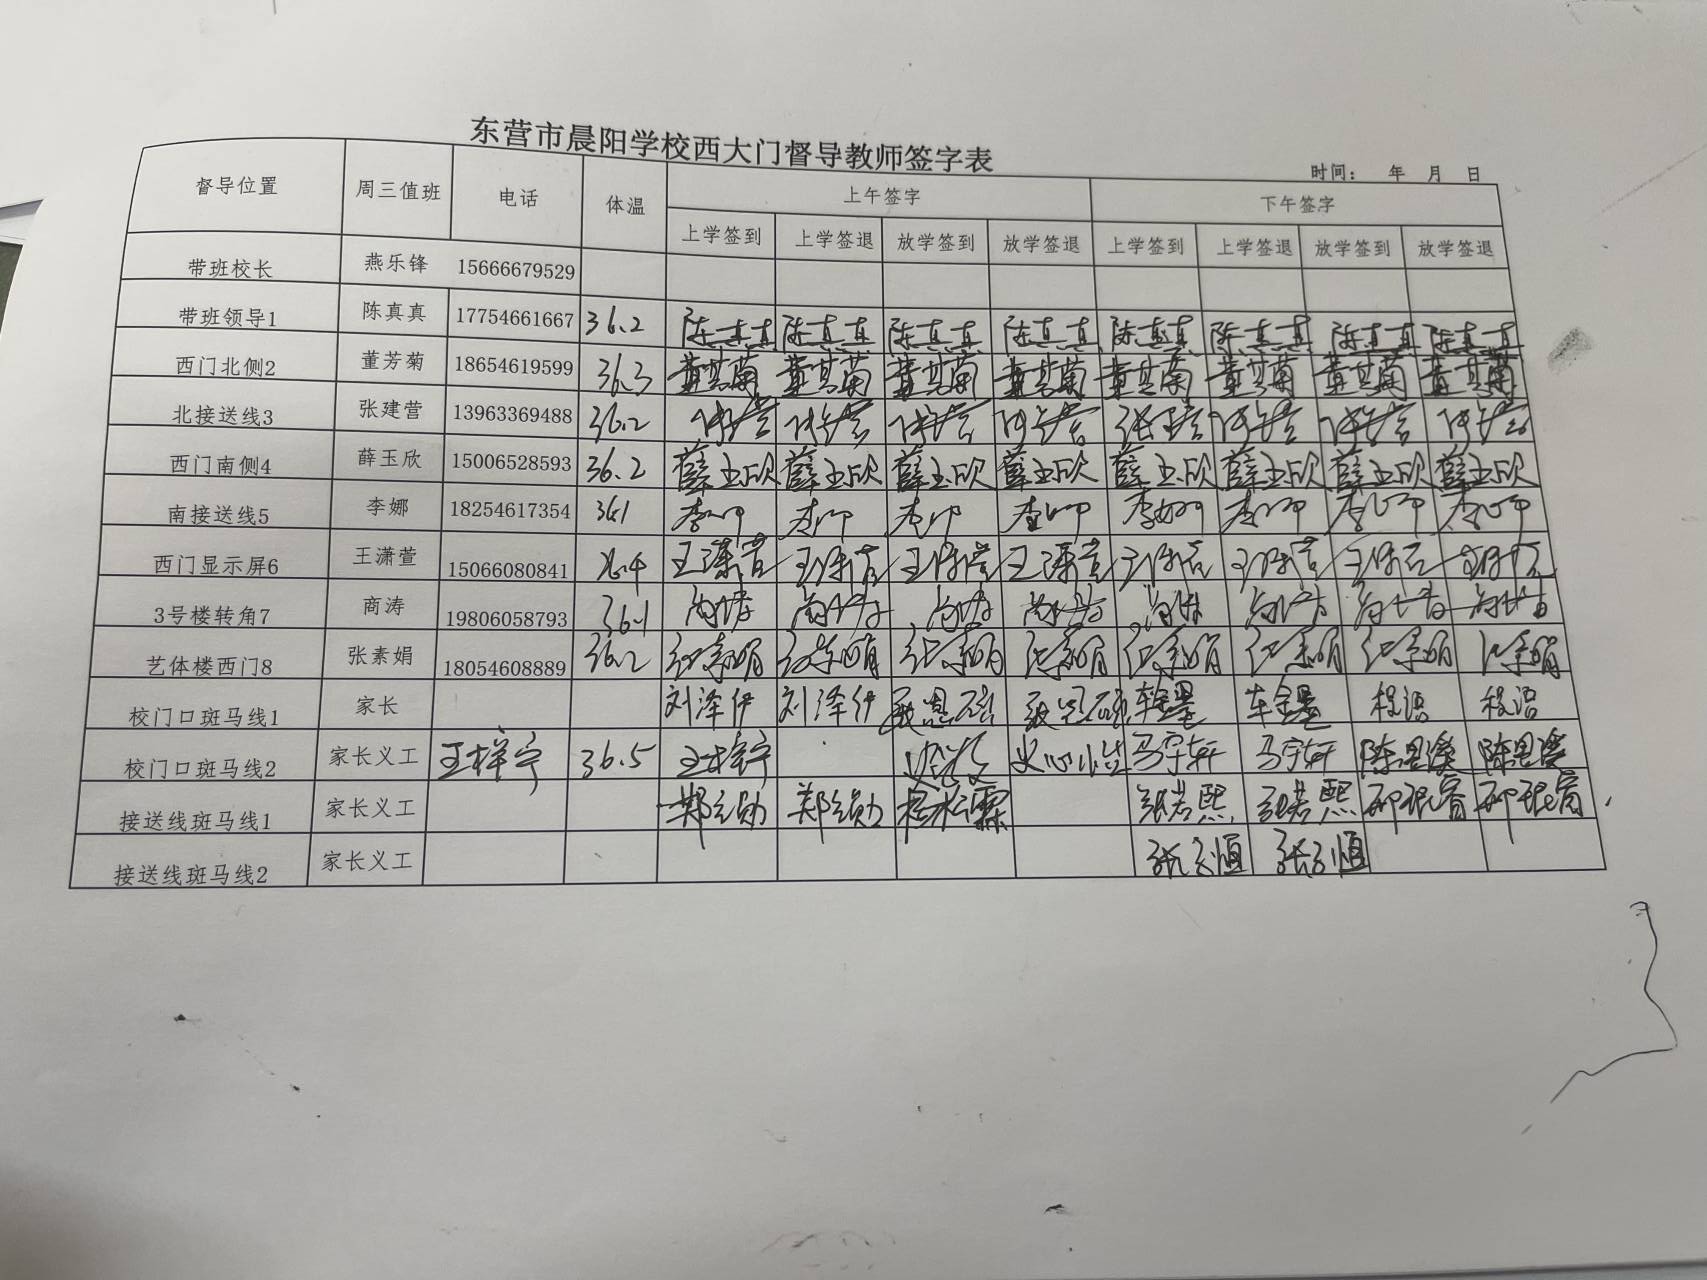 东营市晨阳学校西大门督导教师签字表
时间： 年 月 日
督导位置 周三值班 电话 体温 上午签字 下午签字
上学签到 上学签退 放学签到 放学签退 上学签到 上学签退 放学签到 放学签退
带班校长 燕乐锋 15666679529
带班领导1 陈真真 17754661667 36.2 陈真真 陈真真 陈真真 陈真真 陈真真 陈真真 陈真真 陈真真
西门北侧2 董芳菊 18654619599 36.3 董芳菊 董芳菊 董芳菊 董芳菊 董芳菊 董芳菊 董芳菊 董芳菊
北接送线3 张建营 13963369488 36.2 张建营 张建营 张建营 张建营 张建营 张建营 张建营 张建营
西门南侧4 薛玉欣 15006528593 36.2 薛玉欣 薛玉欣 薛玉欣 薛玉欣 薛玉欣 薛玉欣 薛玉欣 薛玉欣
南接送线5 李娜 18254617354 36.1 李娜 李娜 李娜 李娜 李娜 李娜 李娜 李娜
西门显示屏6 王潇萱 15066080841 36.4 王潇萱 王潇萱 王潇萱 王潇萱 王潇萱 王潇萱 王潇萱 王潇萱
3号楼转角7 商涛 19806058793 36.1 商涛 商涛 商涛 商涛 商涛 商涛 商涛 商涛
艺体楼西门8 张素娟 18054608889 36.2 张素娟 张素娟 张素娟 张素娟 张素娟 张素娟 张素娟 张素娟
校门口斑马线1 家长 刘泽伊 刘泽伊 程诺 程诺
校门口斑马线2 家长义工 王梓宇 36.5 王梓宇 马宇轩 马宇轩 陈思溪 陈思溪
接送线斑马线1 家长义工 张若熙 张若熙
接送线斑马线2 家长义工 张恒 张恒